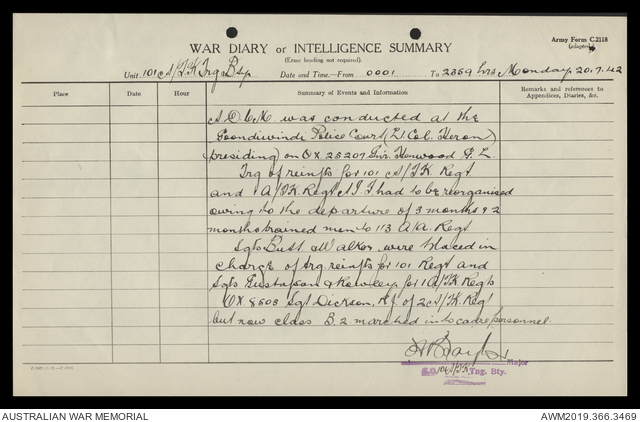 Army Form C.2118
(adapted)
WAR DIARY or INTELLIGENCE SUMMARY
(Erase heading not required).
Unit 101 A/T K Trg Bty Date and Time—From 0001 To 2359 hrs Monday 20.7.42
Place Date Hour Summary of Events and Information Remarks and references to Appendices, Diaries, &c.
A D.C.M was conducted at the
Goondiwindi Police Court (Lt Col. Heron
presiding) on QX 25207 Gnr. Henwood G. L.
Trg of reinfts for 101 A/T.K. Regt
and 1 A/T.K. Regt A.I.F. had to be reorganised
owing to the departure of 3 months & 2
months trained men to 113 A/A. Regt
Sgts Butt & Walker were placed in
charge of trg reinfts for 101 Regt and
Sgts Gustafson & Rowley for 1 A/T.K Regt
QX 8503 Sgt Dickson, of 2 A/T.K. Regt
but now class B.2 marched in to cadre personnel.
Major
101 A/T.K. Tng. Bty.
AUSTRALIAN WAR MEMORIAL
AWM2019.366.3469